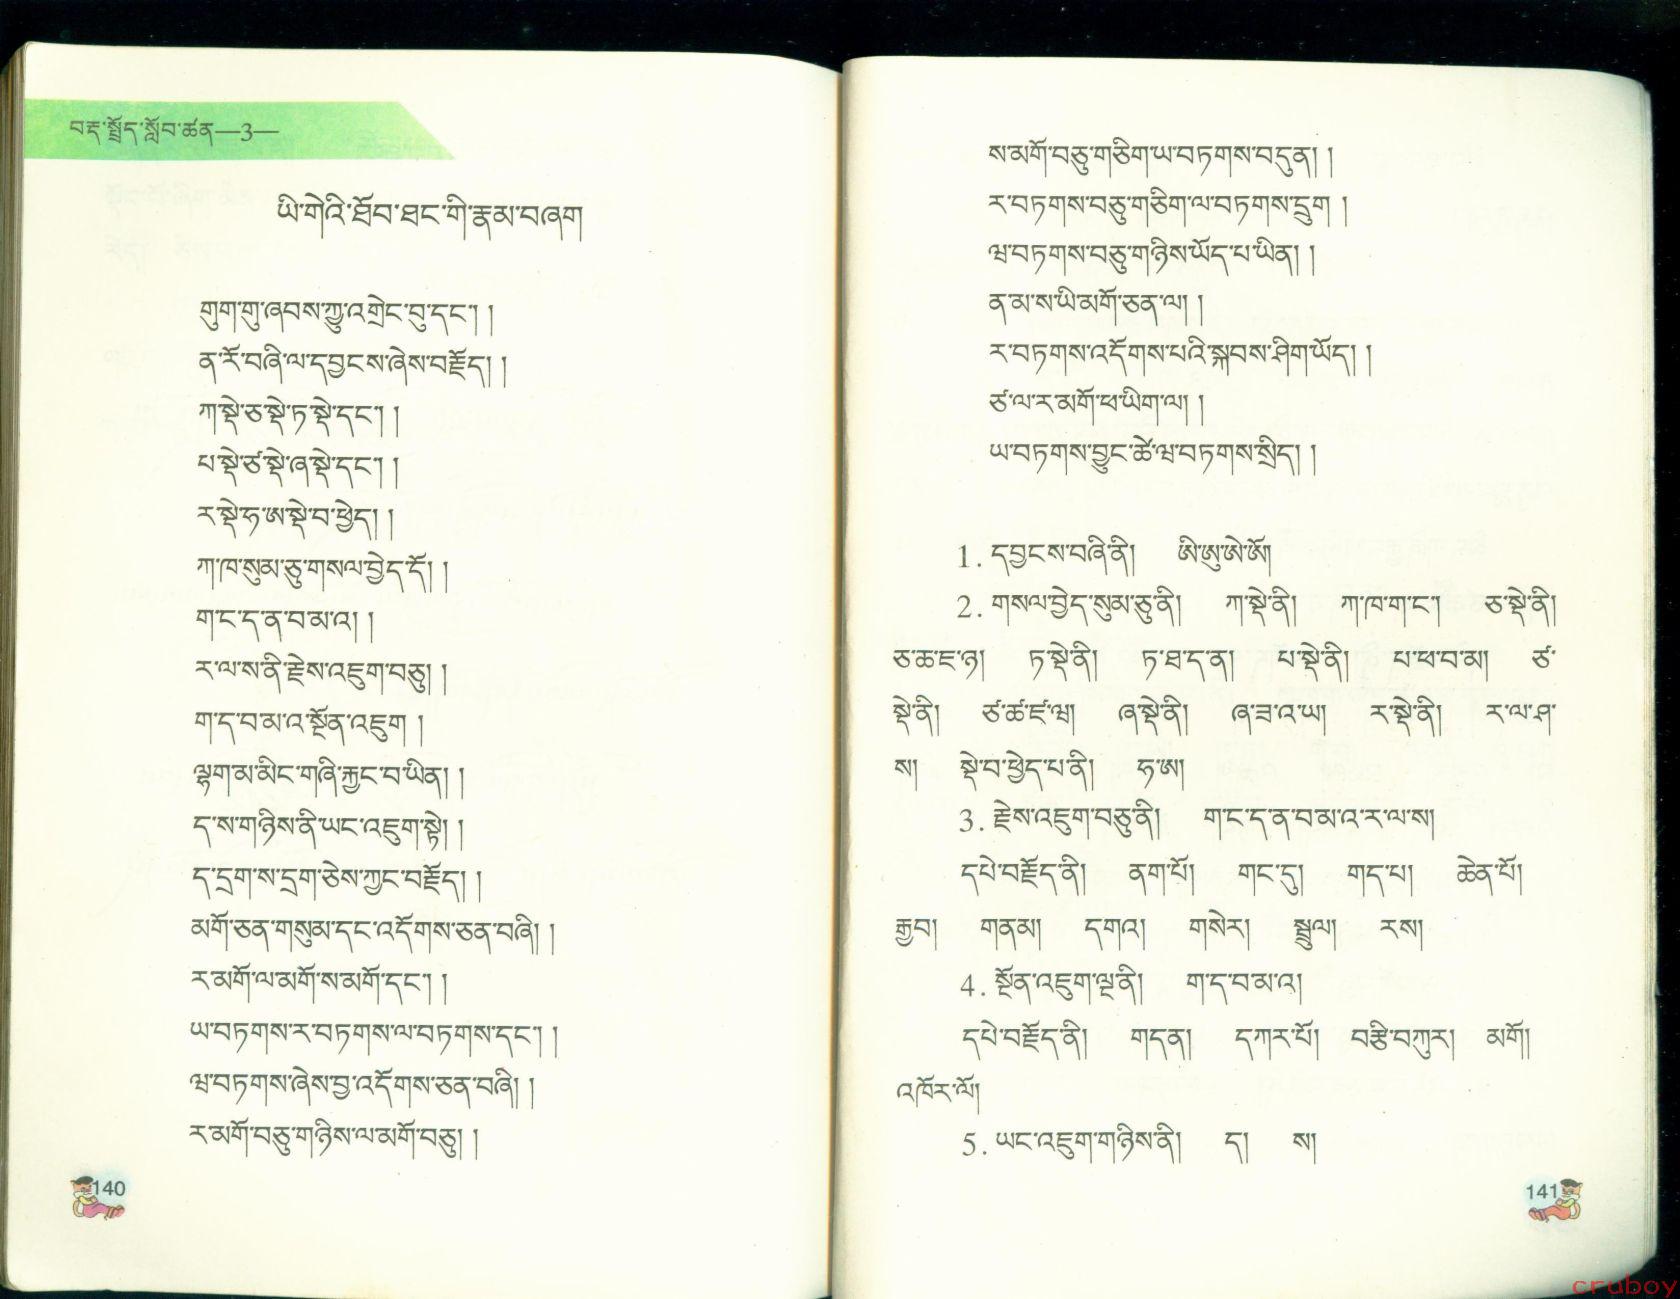 བརྡ་སྤྲོད་སློབ་ཚན—3—
ཡི་གེའི་ཐོབ་ཐང་གི་རྣམ་བཞག
གུག་གུ་ཞབས་ཀྱུ་འགྲེང་བུ་དང་། །
ན་རོ་བཞི་ལ་དབྱངས་ཞེས་བརྗོད། །
ཀ་སྡེ་ཅ་སྡེ་ཏ་སྡེ་དང་། །
པ་སྡེ་ཙ་སྡེ་ཞ་སྡེ་དང་། །
ར་སྡེ་ཧ་ཨ་སྡེ་བ་ཕྱེད། །
ཀ་ཁ་སུམ་ཅུ་གསལ་བྱེད་དོ། །
ག་ང་ད་ན་བ་མ་འ། །
ར་ལ་ས་ནི་རྗེས་འཇུག་བཅུ། །
ག་ད་བ་མ་འ་སྔོན་འཇུག །
ལྷག་མ་མིང་གཞི་རྐྱང་བ་ཡིན། །
ད་ས་གཉིས་ནི་ཡང་འཇུག་སྟེ། །
ད་དྲག་ས་དྲག་ཅེས་ཀྱང་བརྗོད། །
མགོ་ཅན་གསུམ་དང་འདོགས་ཅན་བཞི། །
ར་མགོ་ལ་མགོ་ས་མགོ་དང་། །
ཡ་བཏགས་ར་བཏགས་ལ་བཏགས་དང་། །
ཝ་བཏགས་ཞེས་བྱ་འདོགས་ཅན་བཞི། །
ར་མགོ་བཅུ་གཉིས་ལ་མགོ་བཅུ། །
140
ས་མགོ་བཅུ་གཅིག་ཡ་བཏགས་བདུན། །
ར་བཏགས་བཅུ་གཅིག་ལ་བཏགས་དྲུག །
ཝ་བཏགས་བཅུ་གཉིས་ཡོད་པ་ཡིན། །
ན་མ་ས་ཡི་མགོ་ཅན་ལ། །
ར་བཏགས་འདོགས་པའི་སྐབས་ཤིག་ཡོད། །
ཙ་ལ་ར་མགོ་ཕ་ཡིག་ལ། །
ཡ་བཏགས་བྱུང་ཚེ་ཝ་བཏགས་སྲིད། །
1. དབྱངས་བཞི་ནི། ཨི་ཨུ་ཨེ་ཨོ།
2. གསལ་བྱེད་སུམ་ཅུ་ནི། ཀ་སྡེ་ནི། ཀ་ཁ་ག་ང་། ཅ་སྡེ་ནི།
ཅ་ཆ་ཇ་ཉ། ཏ་སྡེ་ནི། ཏ་ཐ་ད་ན། པ་སྡེ་ནི། པ་ཕ་བ་མ། ཙ་
སྡེ་ནི། ཙ་ཚ་ཛ་ཝ། ཞ་སྡེ་ནི། ཞ་ཟ་འ་ཡ། ར་སྡེ་ནི། ར་ལ་ཤ་
ས། སྡེ་བ་ཕྱེད་པ་ནི། ཧ་ཨ།
3. རྗེས་འཇུག་བཅུ་ནི། ག་ང་ད་ན་བ་མ་འ་ར་ལ་ས།
དཔེ་བརྗོད་ནི། ནག་པོ། གང་དུ། གད་པ། ཆེན་པོ།
རྒྱབ། གནམ། དགའ། གསེར། སྦྲུལ། རས།
4. སྔོན་འཇུག་ལྔ་ནི། ག་ད་བ་མ་འ།
དཔེ་བརྗོད་ནི། གདན། དཀར་པོ། བརྩི་བཀུར། མགོ།
འཁོར་ལོ།
5. ཡང་འཇུག་གཉིས་ནི། ད། ས།
141
cruboy